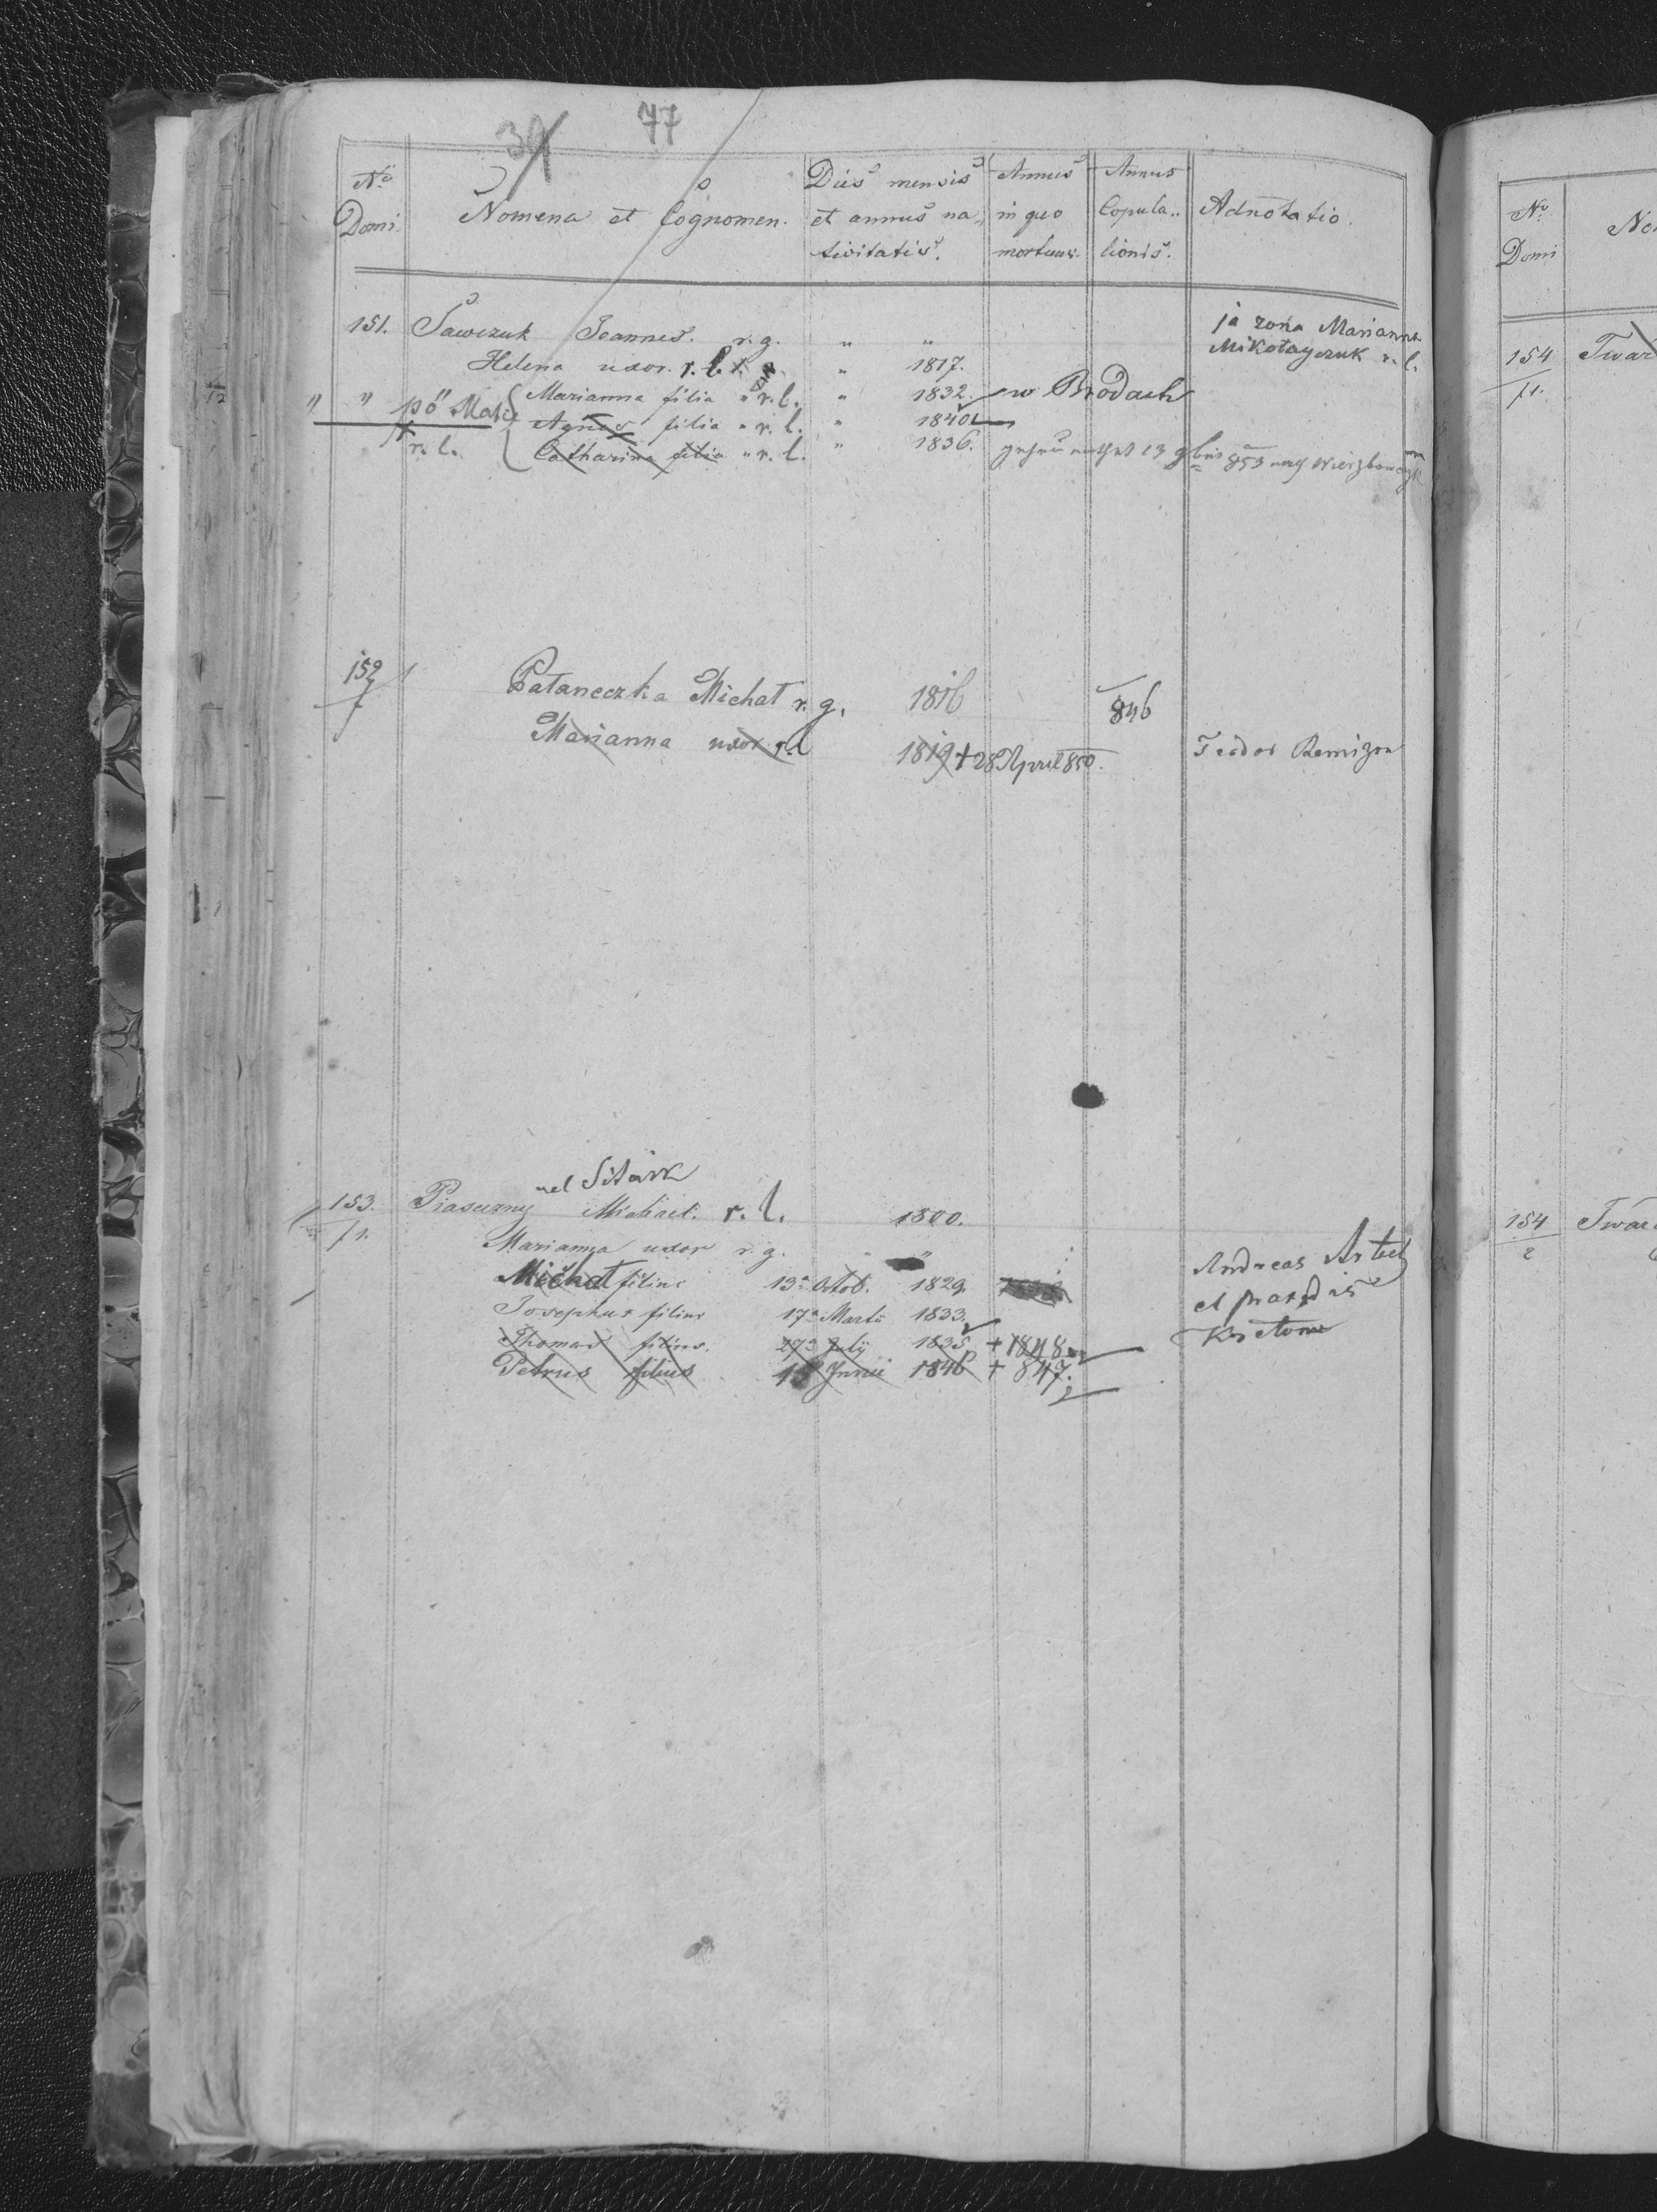 39 77
No Domi
Nomena et Cognomen.
Dies mensis et annus nativitatis.
Annus in quo mortuus.
Annus Copulationis.
Adnotatio.
151. Sawczuk Joannes. r. g. " "
ja zona Marianna
Mikołayczuk r. l.
Helena uxor. r. l. " 1817.
Marianna filia " r. l. " 1832. w Brodach
" " po Mat
Agnes filia " r. l. " 1840
r. l.
Catharina filia " r. l. " 1836. 13 853
152 Pataneczka Michał r. g. 1816 846
Marianna uxor r. l. 1819 + 28 April 850. Teodor Remizon
vel Sitark
153. Piaseczny Michael. r. l. 1800.
/1. Marianna uxor r. g. " "
Andreas
Michał filius 13a Octob. 1829.
et
Josephus filius 17a Martii 1833.
Thomas filius. 27a July 1835 + 1848
Petrus filius 15 Junii 1846 + 847.
No Domi
154 /1.
154 2